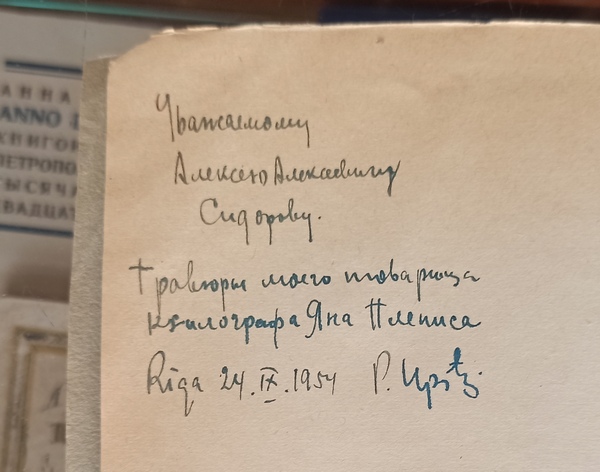 АННА
ANNO
КНИГОИ
ПЕТРОПО
ТЫСЯЧА
ВАДЦАТ
Уважаемому
Алексею Алексеевичу
Сидорову.
Гравюры моего товарища
ксилографа Яна Плеписа
Rīga 24.IX.1954 P. Upītis